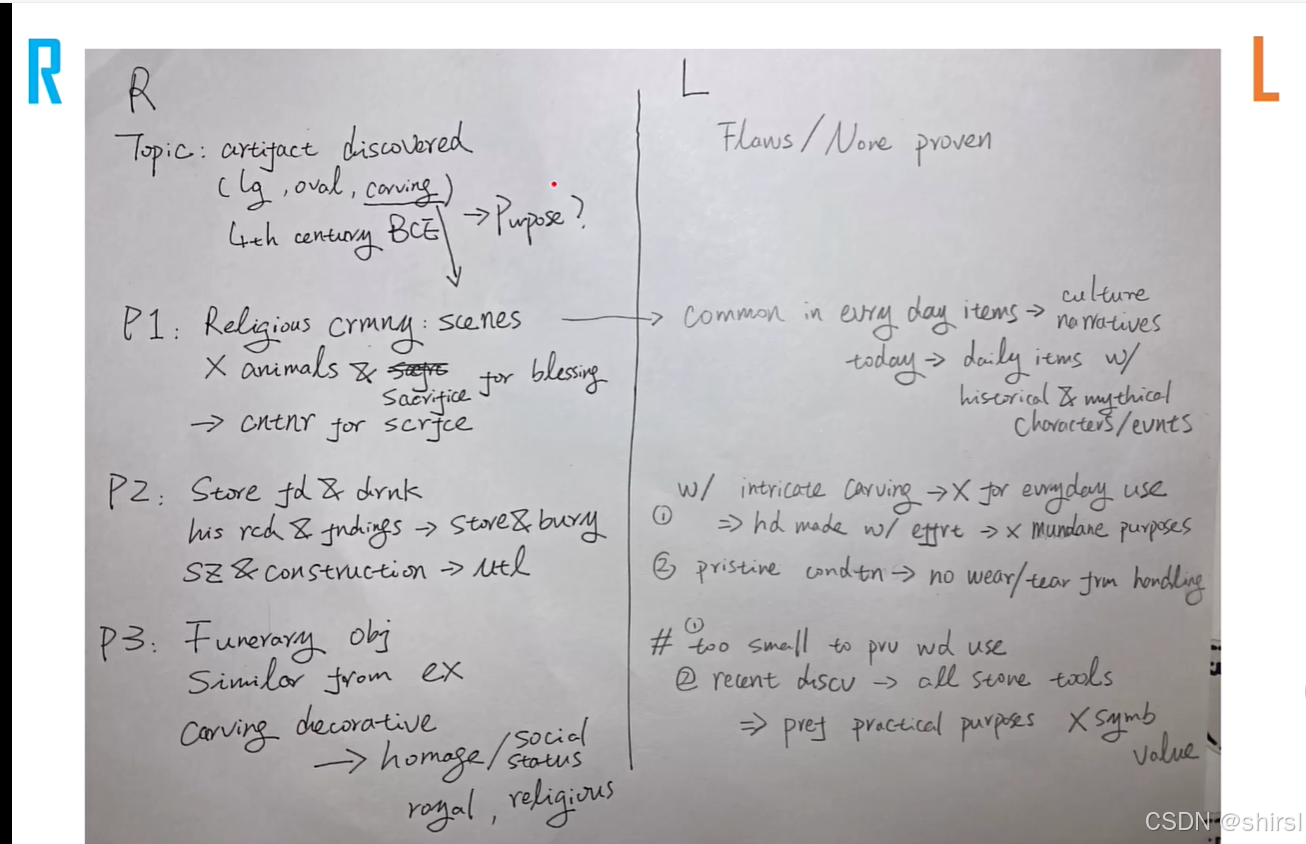 R
L
R
Topic: artifact discovered
(lg, oval, carving)
4th century BCE → Purpose?
P1: Religious crmny: scenes
X animals & sacrifice for blessing
→ cntnr for scrfce
P2: Store fd & drnk
his rcd & fndings → store & bury
SZ & construction → utl
P3: Funerary obj
Similar from ex
Carving decorative
→ homage/social status
royal, religious
L
Flaws/None proven
common in evry day items → culture narratives
today → daily itms w/
historical & mythical
characters/evnts
w/ intricate carving → X for evryday use
① ⇒ hd made w/ effrt → X mundane purposes
② pristine condtn → no wear/tear frm handling
# ① too small to prv wd use
② recent discv → all stone tools
⇒ pref practical purposes X symb
value
CSDN @shirsl